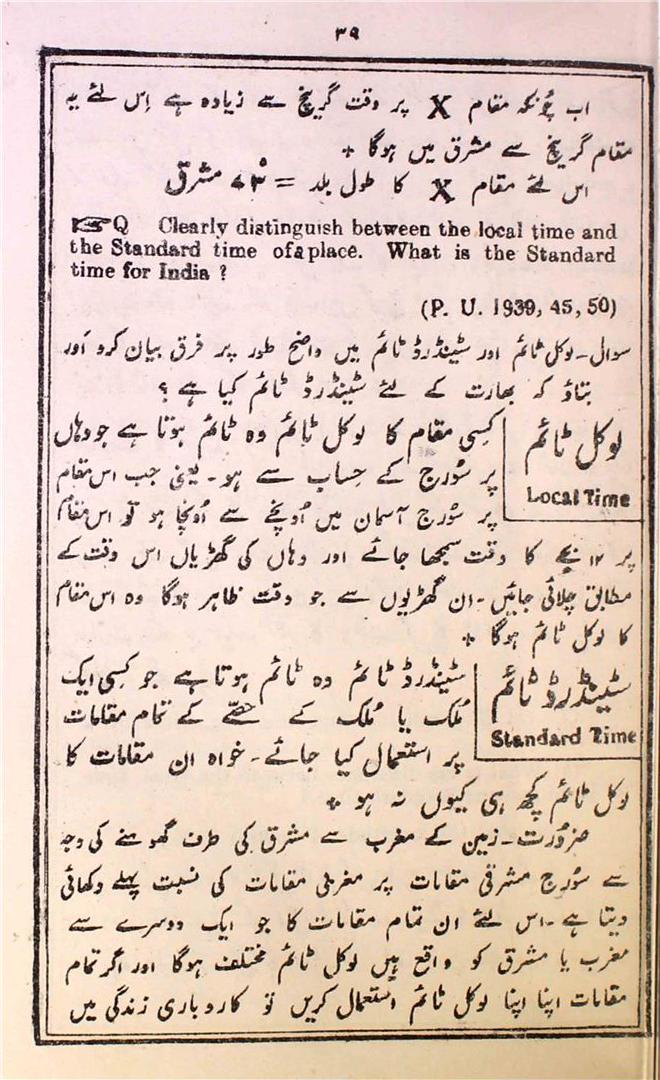 ۳۹
اب چونکہ مقام X پر وقت گرینچ سے زیادہ ہے اِس لئے یہ
مقام گرینچ سے مشرق میں ہوگا +
اس لئے مقام X کا طول بلد = مشرق
Q Clearly distinguish between the local time and
the Standard time of a place. What is the Standard
time for India ?
(P. U. 1939, 45, 50)
سوال۔ لوکل ٹائم اور سٹینڈرڈ ٹائم میں واضح طور پر فرق بیان کرو اور
بتاؤ کہ بھارت کے لئے سٹینڈرڈ ٹائم کیا ہے ؟
لوکل ٹائم
Local Time
کِسی مقام کا لوکل ٹائم وہ ٹائم ہوتا ہے جو وہاں
پر سُورج کے حِساب سے ہو۔ یعنی جب اس مقام
پر سُورج آسمان میں اُونچے سے اُونچا ہو تو اس مقام
پر ۱۲ بجے کا وقت سمجھا جائے اور وہاں کی گھڑیاں اس وقت کے
مطابق چلائی جائیں۔ ان گھڑیوں سے جو وقت ظاہر ہوگا وہ اس مقام
کا لوکل ٹائم ہوگا +
سٹینڈرڈ ٹائم
Standard Time
سٹینڈرڈ ٹائم وہ ٹائم ہوتا ہے جو کِسی ایک
مُلک یا مُلک کے حصّے کے تمام مقامات
پر استعمال کیا جائے۔ خواہ ان مقامات کا
لوکل ٹائم کچھ ہی کیوں نہ ہو +
ضرُورت۔ زمین کے مغرب سے مشرق کی طرف گھومنے کی وجہ
سے سُورج مشرقی مقامات پر مغربی مقامات کی نسبت پہلے دکھائی
دیتا ہے۔ اس لئے ان تمام مقامات کا جو ایک دوسرے سے
مغرب یا مشرق کو واقع ہیں لوکل ٹائم مختلف ہوگا اور اگر تمام
مقامات اپنا اپنا لوکل ٹائم استعمال کریں تو کاروباری زندگی میں